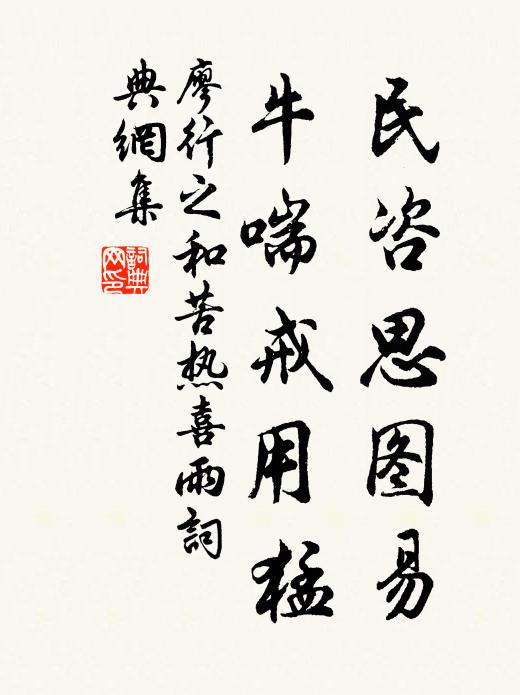 民咨思图易
牛喘戒用猛
廖行之和苦热喜雨詞
典網集
詞典网印